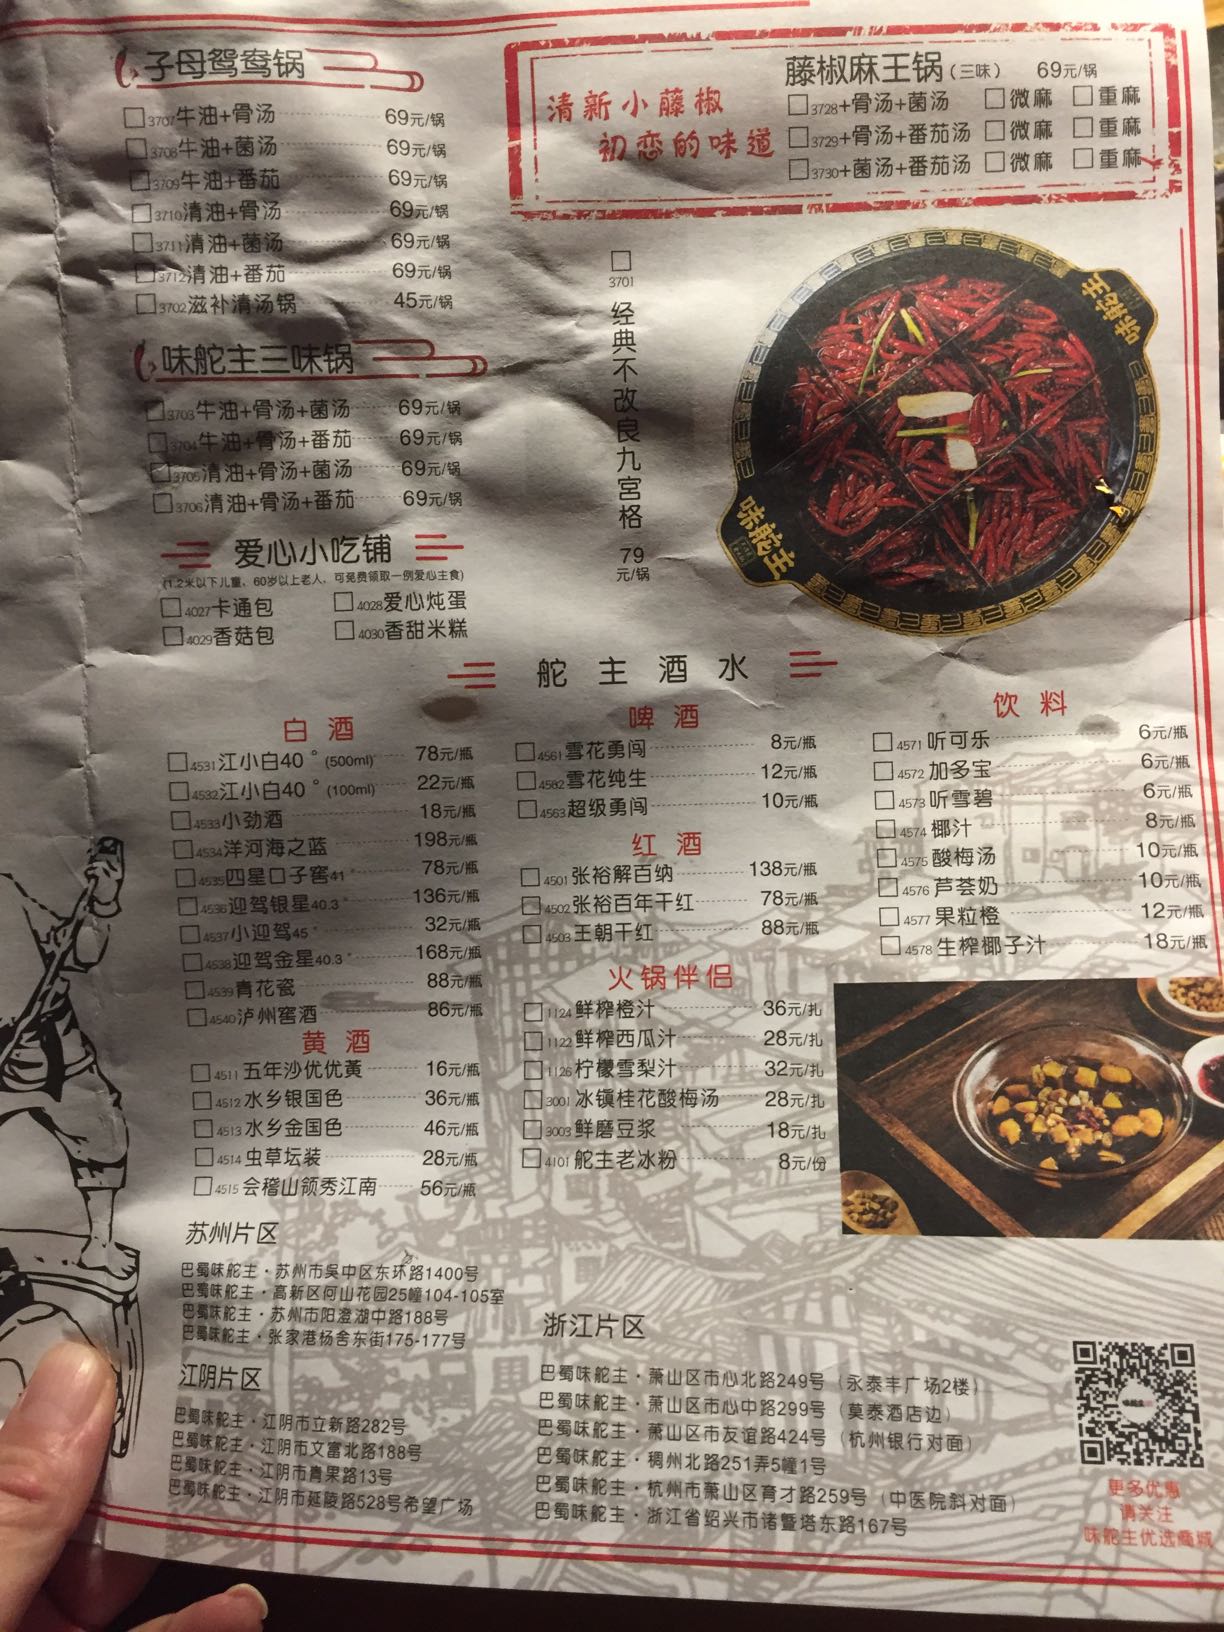 子母鸳鸯锅
3707牛油+骨汤 69元/锅
3708牛油+菌汤 69元/锅
3709牛油+番茄 69元/锅
3710清油+骨汤 69元/锅
3711清油+菌汤 69元/锅
3712清油+番茄 69元/锅
3702滋补清汤锅 45元/锅
味舵主三味锅
3703牛油+骨汤+菌汤 69元/锅
3704牛油+骨汤+番茄 69元/锅
3705清油+骨汤+菌汤 69元/锅
3706清油+骨汤+番茄 69元/锅
爱心小吃铺
(1.2米以下儿童、60岁以上老人，可免费领取一例爱心主食)
4027卡通包 4028爱心炖蛋
4029香菇包 4030香甜米糕
清新小藤椒
初恋的味道
藤椒麻王锅(三味) 69元/锅
3728+骨汤+菌汤 微麻 重麻
3729+骨汤+番茄汤 微麻 重麻
3730+菌汤+番茄汤 微麻 重麻
3701
经典不改良九宫格
79
元/锅
味舵主
味舵主
舵主酒水
白酒
4531江小白40°(500ml) 78元/瓶
4532江小白40°(100ml) 22元/瓶
4533小劲酒 18元/瓶
4534洋河海之蓝 198元/瓶
4535四星口子窖41° 78元/瓶
4536迎驾银星40.3° 136元/瓶
4537小迎驾45° 32元/瓶
4538迎驾金星40.3° 168元/瓶
4539青花瓷 88元/瓶
4540泸州窖酒 86元/瓶
黄酒
4511五年沙优优黃 16元/瓶
4512水乡银国色 36元/瓶
4513水乡金国色 46元/瓶
4514虫草坛装 28元/瓶
4515会稽山领秀江南 56元/瓶
啤酒
4561雪花勇闯 8元/瓶
4562雪花纯生 12元/瓶
4563超级勇闯 10元/瓶
红酒
4501张裕解百纳 138元/瓶
4502张裕百年干红 78元/瓶
4503王朝干红 88元/瓶
火锅伴侣
1124鲜榨橙汁 36元/扎
1122鲜榨西瓜汁 28元/扎
1126柠檬雪梨汁 32元/扎
3001冰镇桂花酸梅汤 28元/扎
3003鲜磨豆浆 18元/扎
4101舵主老冰粉 8元/份
饮料
4571听可乐 6元/瓶
4572加多宝 6元/瓶
4573听雪碧 6元/瓶
4574椰汁 8元/瓶
4575酸梅汤 10元/瓶
4576芦荟奶 10元/瓶
4577果粒橙 12元/瓶
4578生榨椰子汁 18元/瓶
苏州片区
巴蜀味舵主·苏州市吴中区东环路1400号
巴蜀味舵主·高新区何山花园25幢104-105室
巴蜀味舵主·苏州市阳澄湖中路188号
巴蜀味舵主·张家港杨舍东街175-177号
江阴片区
巴蜀味舵主·江阴市立新路282号
巴蜀味舵主·江阴市文富北路188号
巴蜀味舵主·江阴市青果路13号
巴蜀味舵主·江阴市延陵路528号希望广场
浙江片区
巴蜀味舵主·萧山区市心北路249号（永泰丰广场2楼）
巴蜀味舵主·萧山区市心中路299号（莫泰酒店边）
巴蜀味舵主·萧山区市友谊路424号（杭州银行对面）
巴蜀味舵主·稠州北路251弄5幢1号
巴蜀味舵主·杭州市萧山区育才路259号（中医院斜对面）
巴蜀味舵主·浙江省绍兴市诸暨塔东路167号
更多优惠
请关注
味舵主优选商城